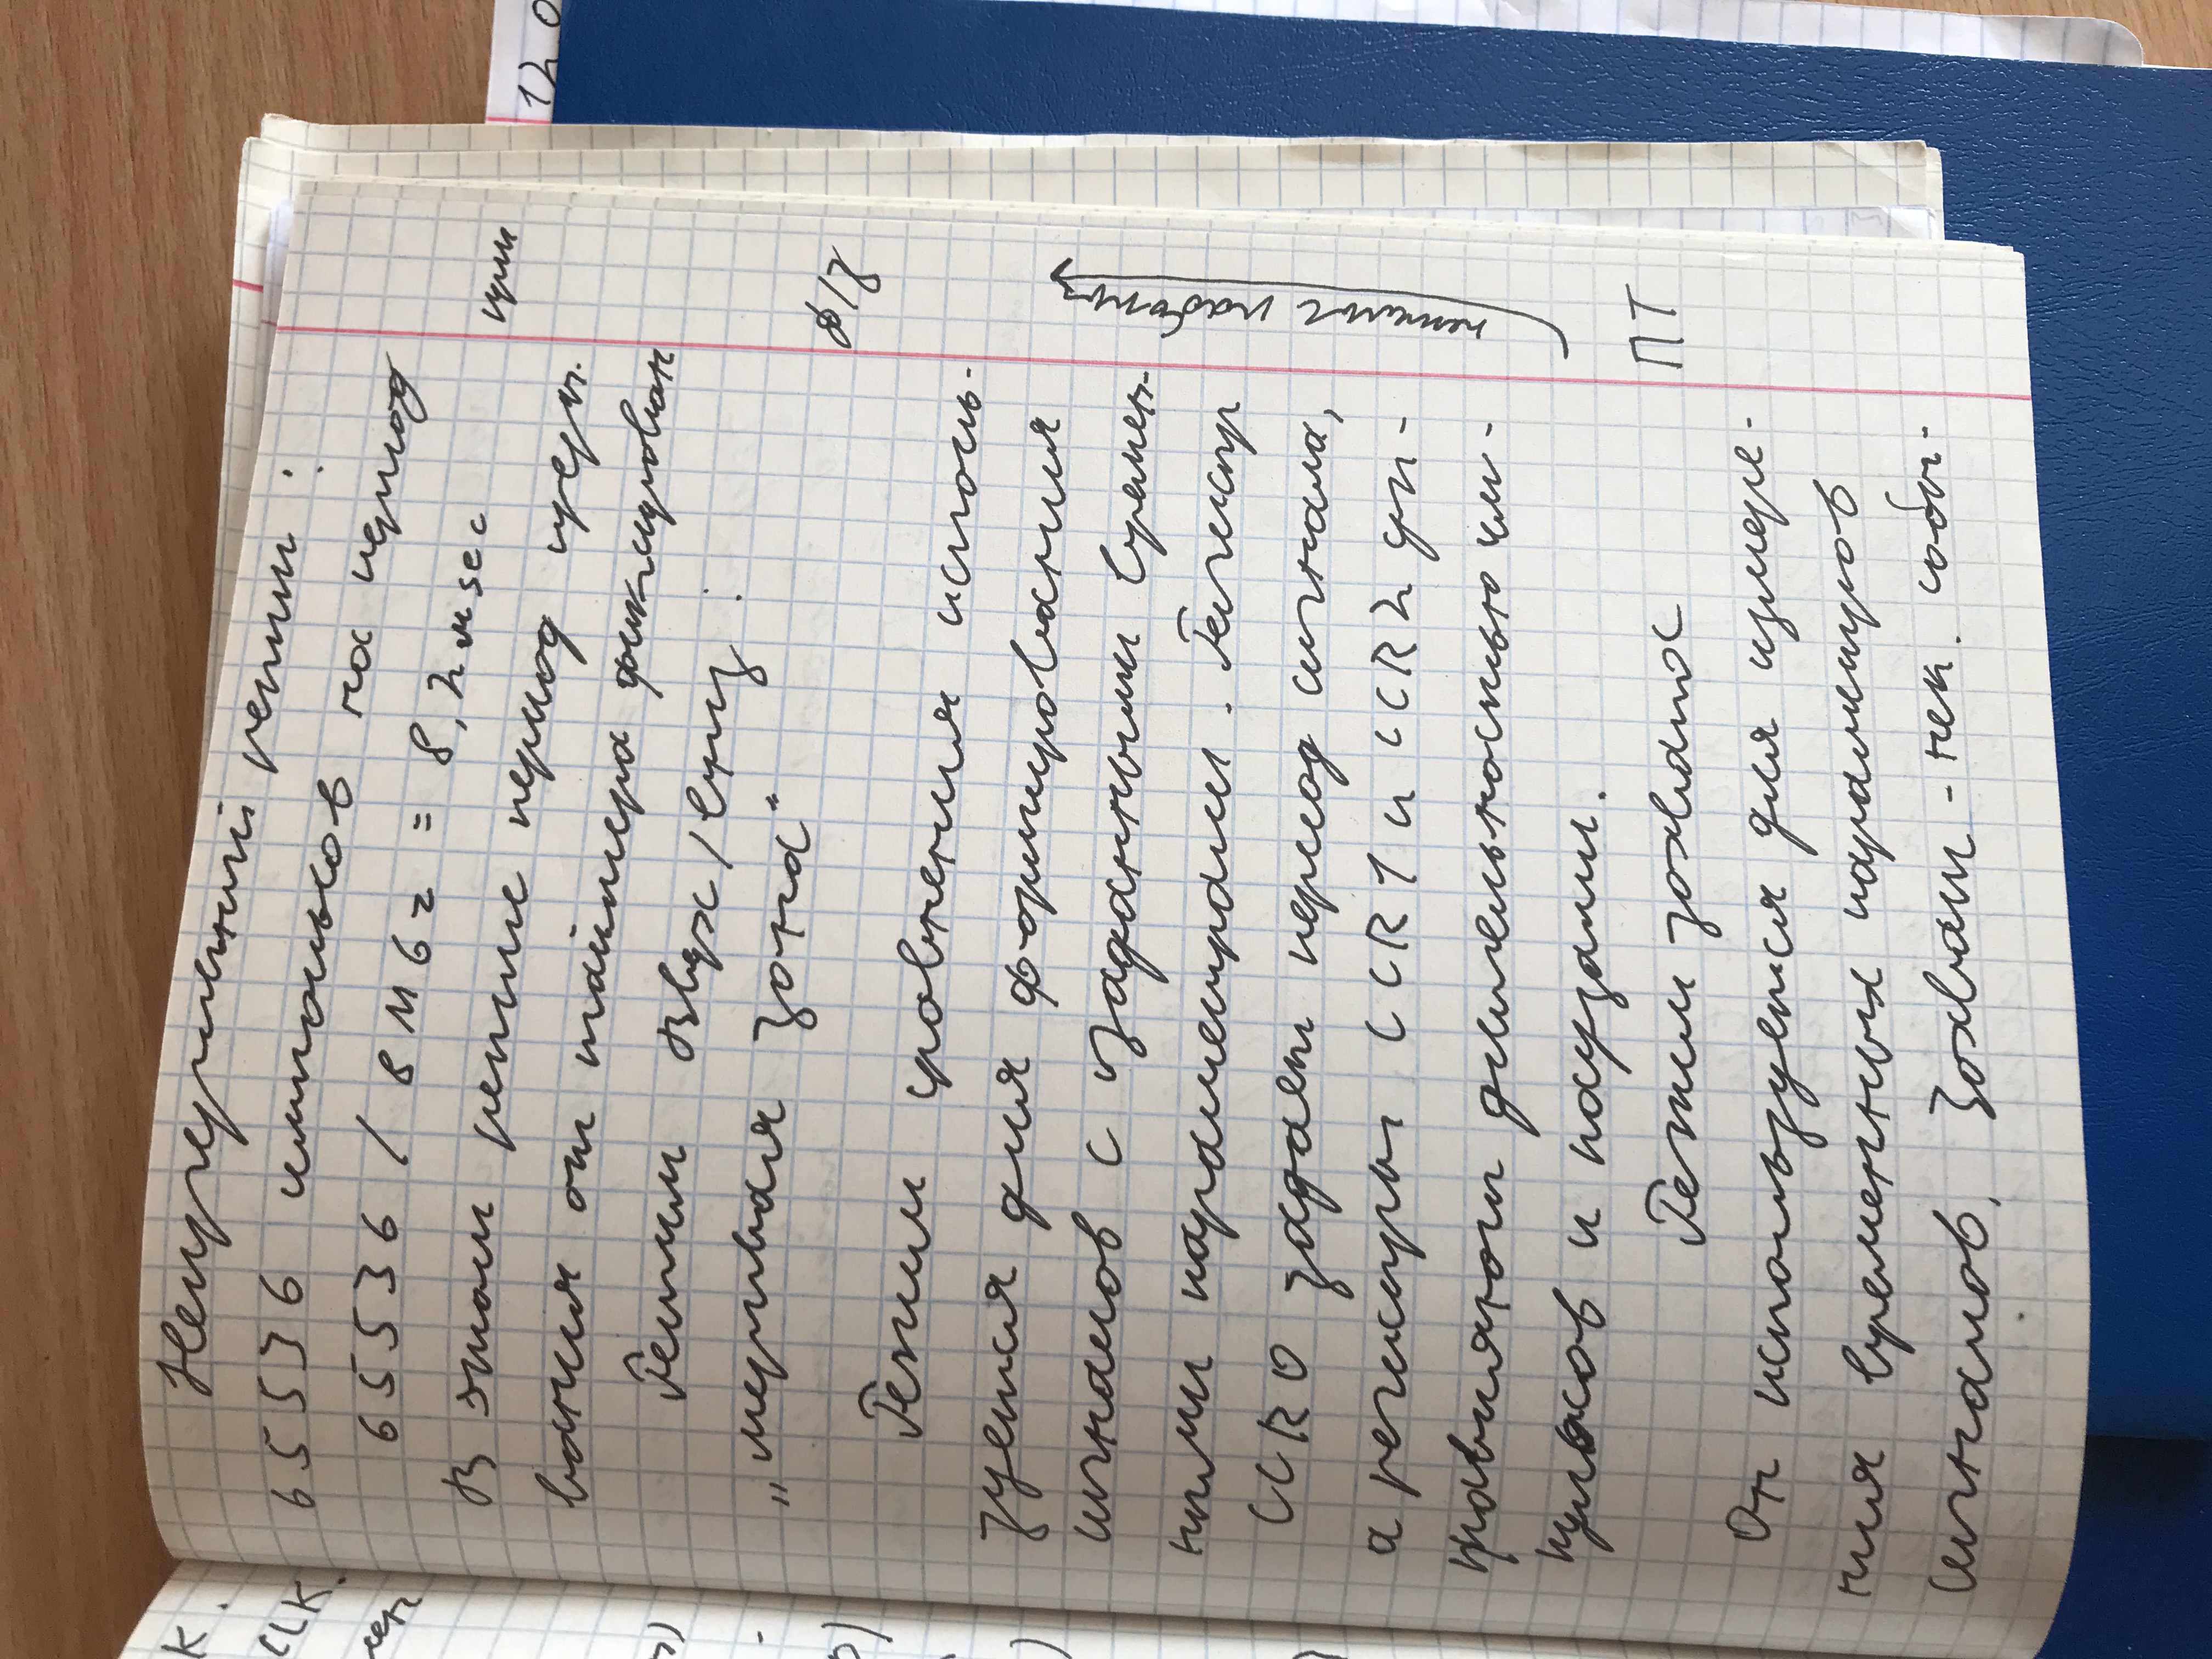 К.
CLK.
Непрерывный режим :
65536 импольсов на период
65536 / 8 М Гц = 8,2 мsec
В этом режиме период преры-
вания от таймера фиксирован
Режим Вверх/вниз :
„мертвая зона“
Режим сравнения исполь-
зуется для формирования
сигналов с заданными времен-
ными параметрами. Регистр
CCR0 задает период сигнала,
а регистры CCR1 и CCR2 уп-
равляют длительностью им-
пульсов и паузами.
Режим захвата
Он используется для измере-
ния временных параметров
сигналов. Захват - нек. собы-
при
Ф/З
ПТ
120